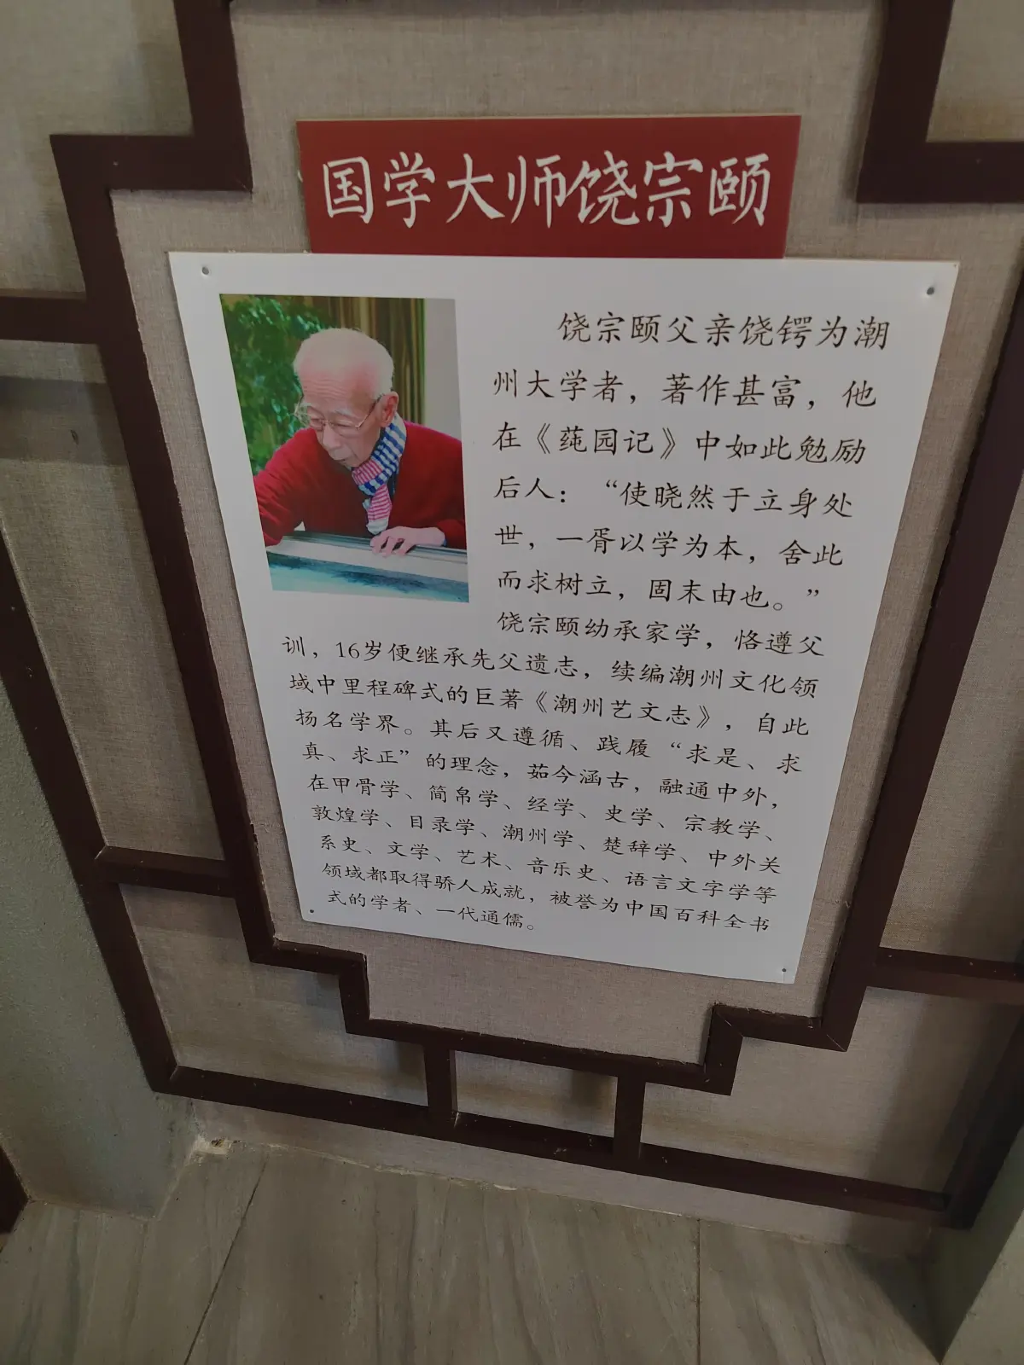 国学大师饶宗颐
饶宗颐父亲饶锷为潮
州大学者，著作甚富，他
在《莼园记》中如此勉励
后人：“使晓然于立身处
世，一胥以学为本，舍此
而求树立，固末由也。”
饶宗颐幼承家学，恪遵父
训，16岁便继承先父遗志，续编潮州文化领
域中里程碑式的巨著《潮州艺文志》，自此
扬名学界。其后又遵循、践履“求是、求
真、求正”的理念，茹今涵古，融通中外，
在甲骨学、简帛学、经学、史学、宗教学、
敦煌学、目录学、潮州学、楚辞学、中外关
系史、文学、艺术、音乐史、语言文字学等
领域都取得骄人成就，被誉为中国百科全书
式的学者、一代通儒。